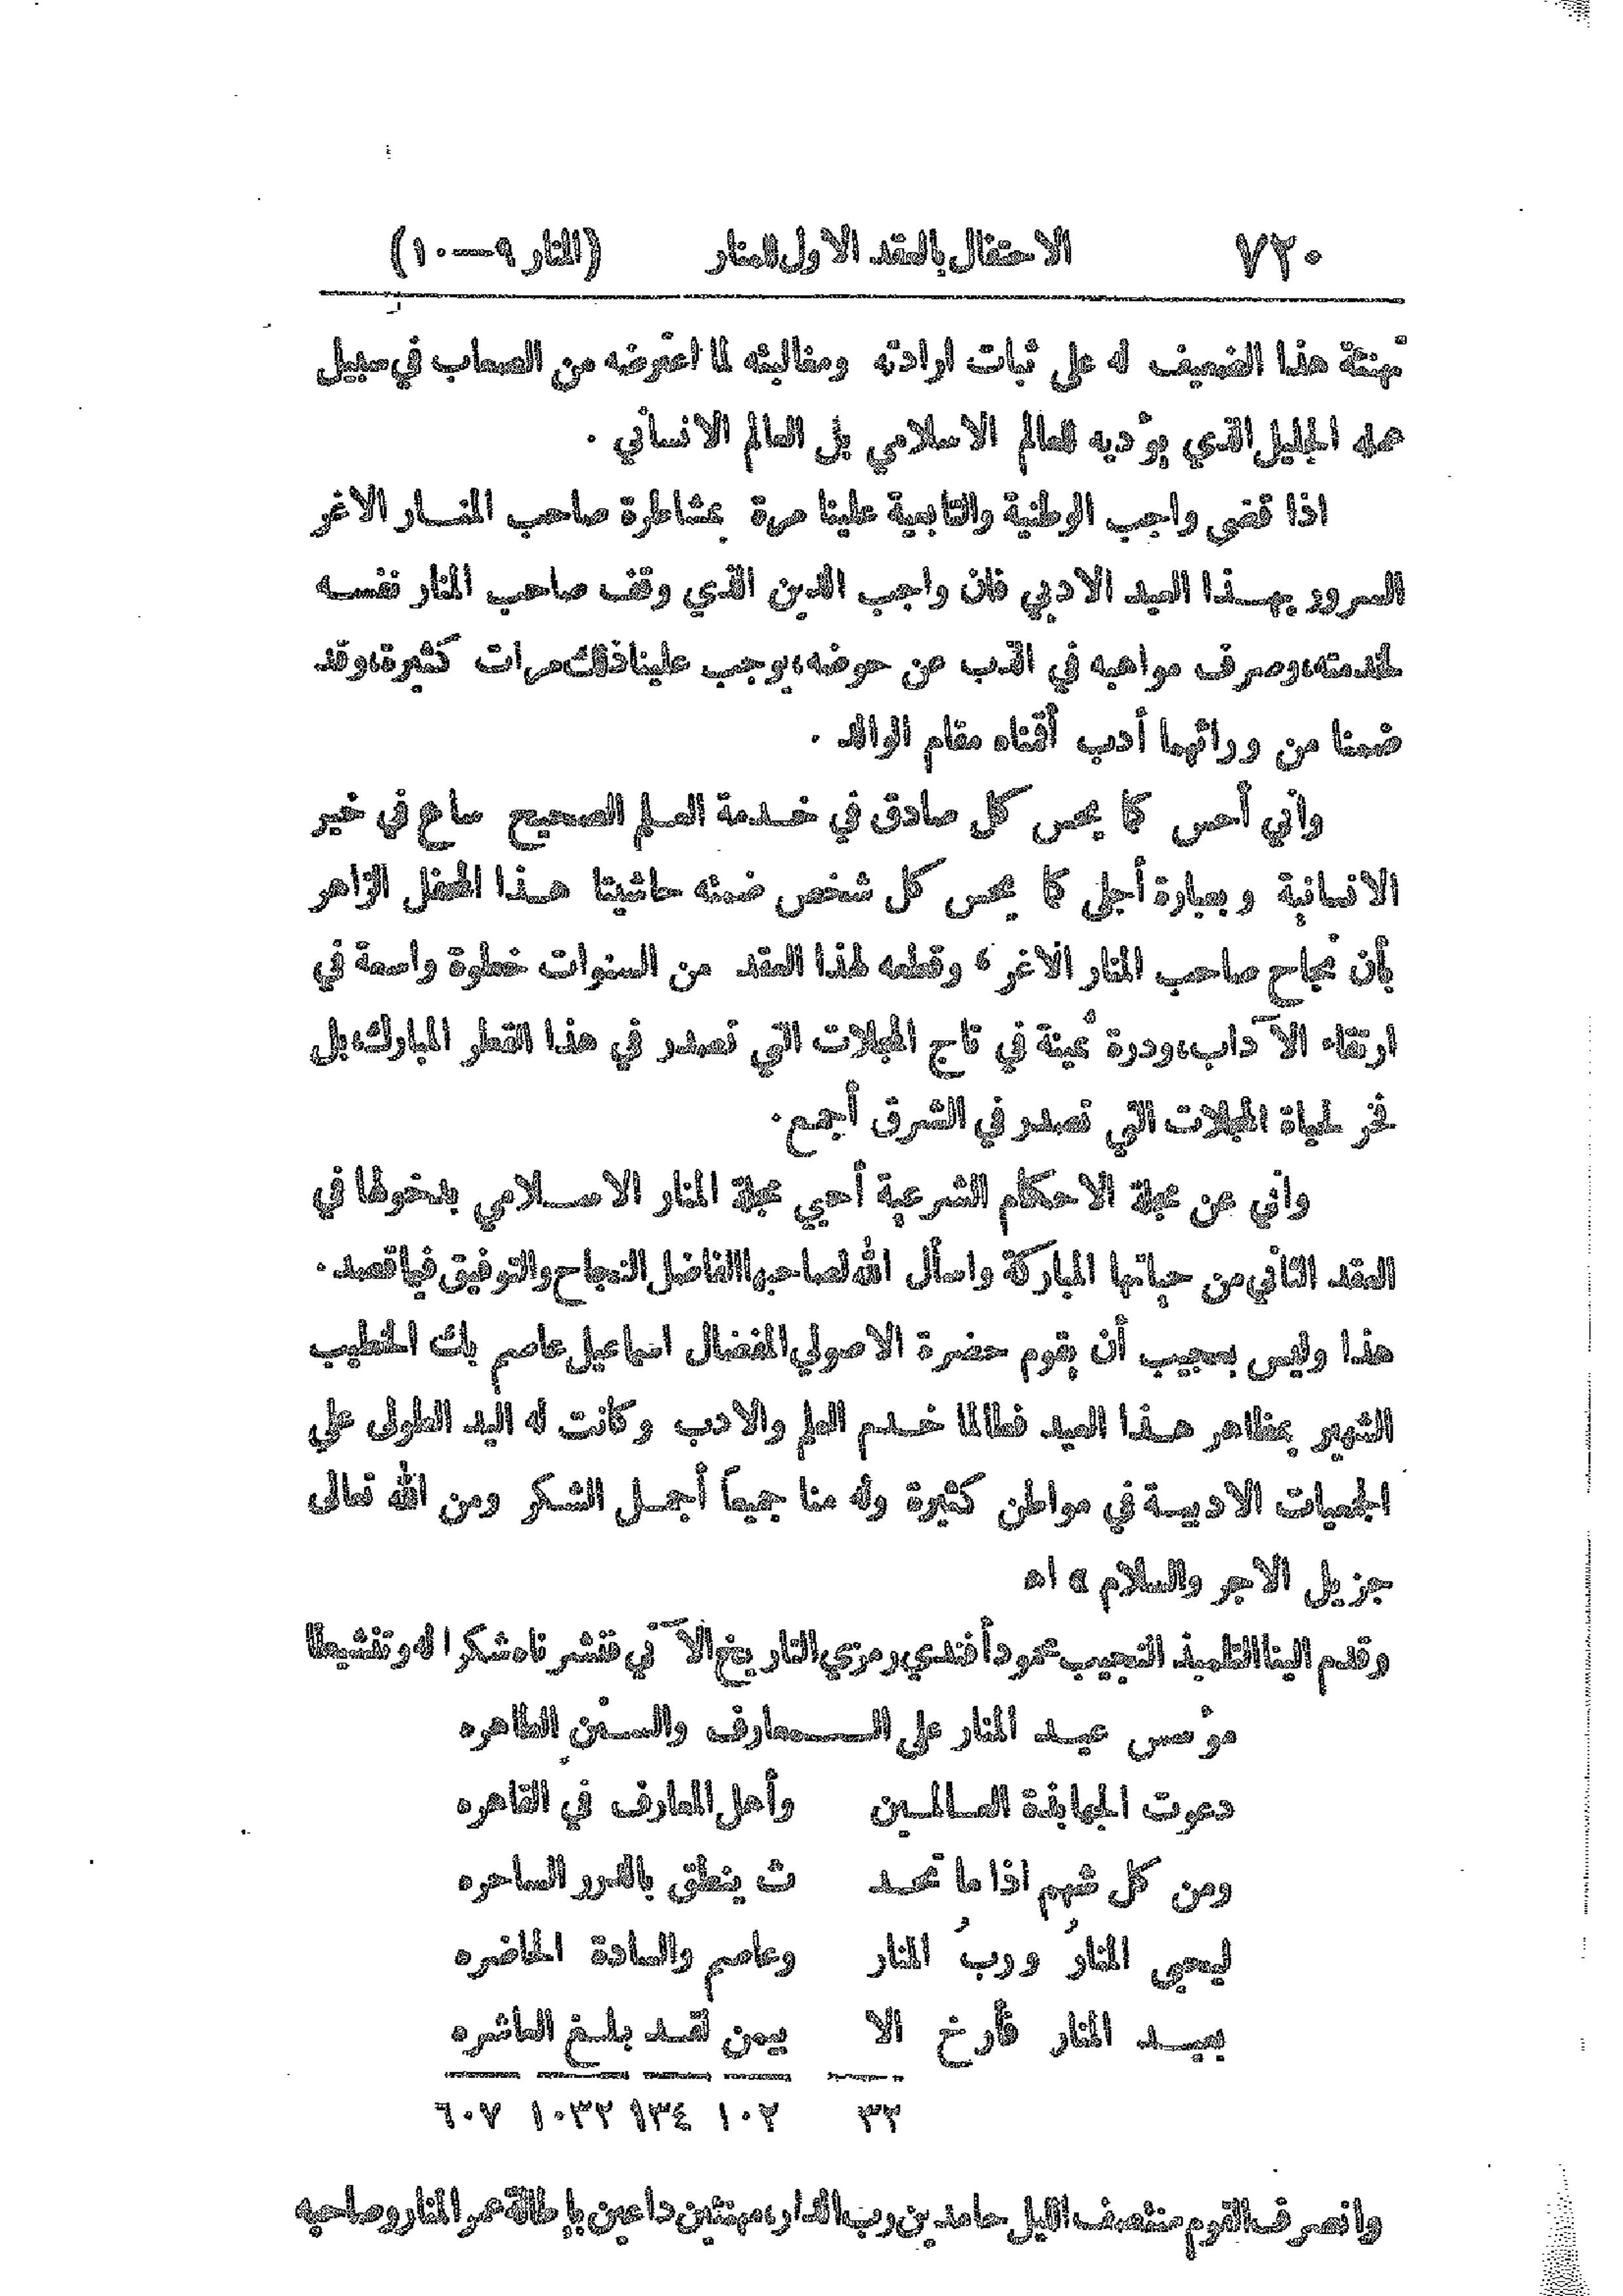 ٧٢٠ الاحتفال بالعقد الاول للمنار (المنار ٩—١٠)
تهنئة هذا الضعيف له على ثبات ارادته ومغالبته لما اعترضه من الصعاب في سبيل
عمله الجليل الذي يؤديه للعالم الاسلامي بل العالم الانساني .
اذا قضى واجب الوطنية والتابعية علينا مرة بمشاطرة صاحب المنار الاغر
السرور بهذا العيد الادبي فان واجب الدين الذي وقف صاحب المنار نفسه
لخدمته، وصرف مواهبه في الذب عن حوضه، يوجب علينا ذلك مرات كثيرة، وقد
ضمنا من ورائهما أدب أقناه مقام الوالد .
واني أحس كما يحس كل صادق في خدمة العلم الصحيح ساع في خير
الانسانية وبعبارة أجلى كما يحس كل شخص ضمته حاشيتا هذا المحفل الزاهر
بأن نجاح صاحب المنار الاغر، وقطعه لهذا العقد من السنوات خطوة واسعة في
ارتقاء الآداب، ودرة ثمينة في تاج المجلات التي تصدر في هذا القطر المبارك، بل
فخر لحياة المجلات التي تصدر في الشرق أجمع.
واني عن مجلة الاحكام الشرعية أحيي مجلة المنار الاسلامي بدخولها في
العقد الثاني من حياتها المباركة واسأل الله لصاحبها الفاضل النجاح والتوفيق فيما قصد.
هذا وليس بعجيب أن يقوم حضرة الاصولي المفضال اسماعيل عاصم بك الخطيب
الشهير بمظاهر هذا العيد فطالما خدم العلم والادب وكانت له اليد الطولى على
الجمعيات الادبية في مواطن كثيرة وله منا جميعاً أجمل الشكر ومن الله تعالى
جزيل الاجر والسلام » اه
وقدم الينا التلميذ النجيب محمود أفندي رمزي التاريخ الآتي فنشرناه شكرا له وتنشيطا
مؤسس عيد المنار على الـمعارف والسنن الطاهره
دعوت الجهابذة العالمين وأهل المعارف في القاهره
ومن كل شهم اذا ما تحد ث ينطق بالدرر الساحره
ليحيى المنارُ وربُ المنار وعاصم والسادة الحاضره
بعيد المنار فأرخ الا بيمن لقد بلغ العاشره
٣٢ ١٠٢ ١٣٤ ١٠٣٢ ٦٠٧
وانصرف القوم منتصف الليل حامدين رب الدار، مهنئين داعين بإطالة عمر المنار وصاحبه